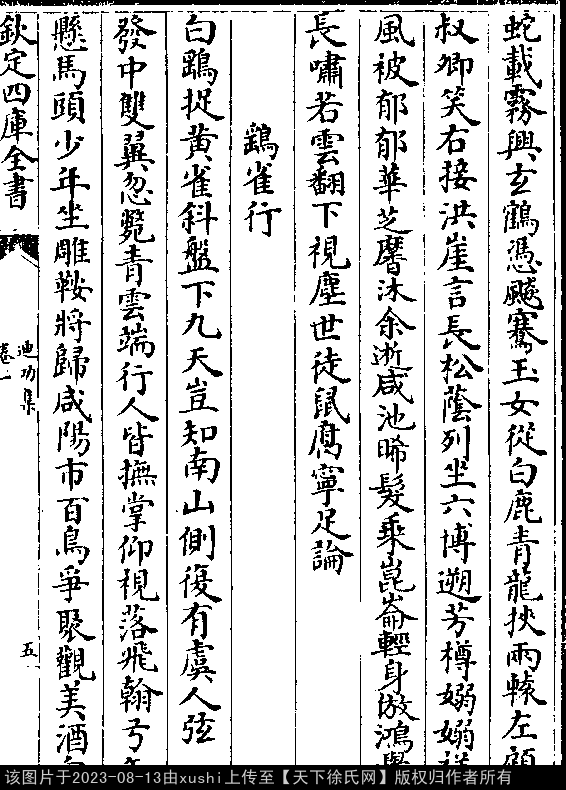 蛇載霧興玄鶴憑飈騫玉女從白鹿青龍挾兩轅左顧
叔卿笑右接洪崖言長松蔭列坐六博遡芳樽嫋嫋
風被郁郁華芝麐沐余逝咸池晞髮乘崑崙輕身放鴻
長嘯若雲翻下視塵世徒鼠腐寧足論
鷂雀行
白鷂捉黃雀斜盤下九天豈知南山側復有虞人弦
發中雙翼忽斃青雲端行人皆撫掌仰視落飛翰弓
懸馬頭少年坐雕鞍將歸咸陽市百鳥爭聚觀美酒
欽定四庫全書
迪功集
卷一
五
该图片于2023-08-13由xushi上传至【天下徐氏网】版权归作者所有